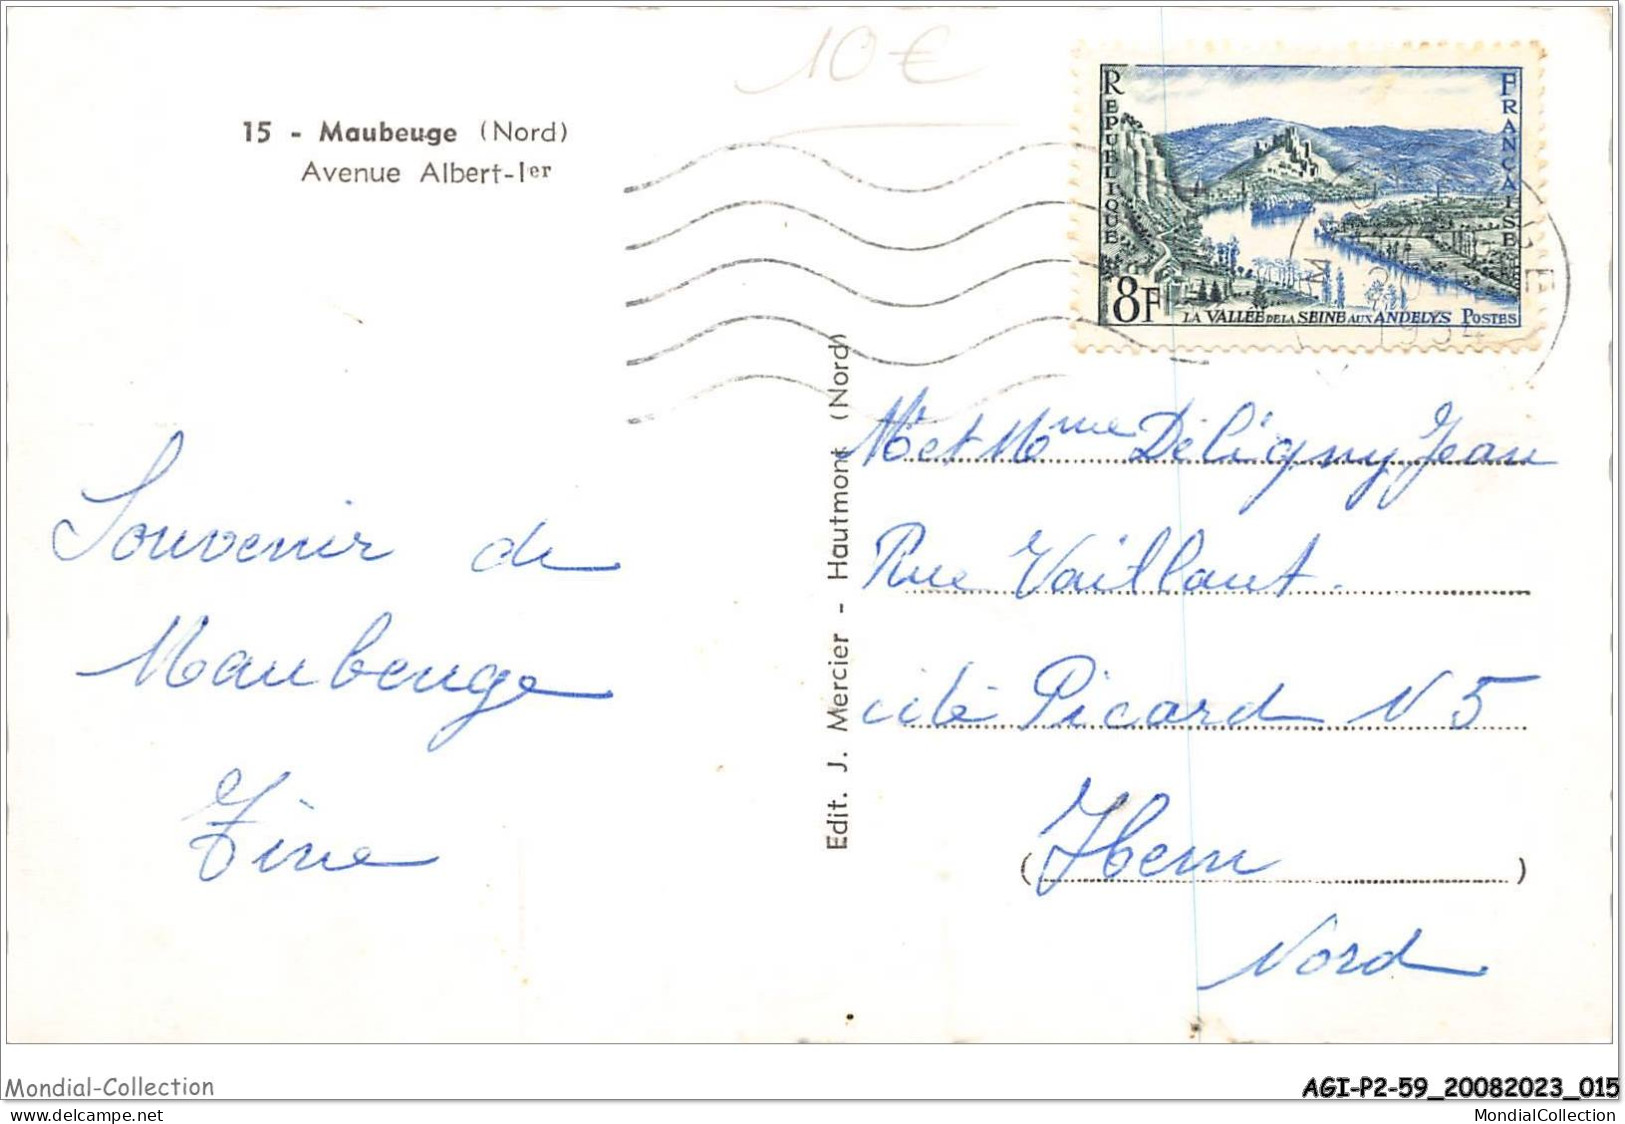 10€
15 - Maubeuge (Nord)
Avenue Albert-Ier
RÉPUBLIQUE
FRANÇAISE
8F
LA VALLÉE DE LA SEINE AUX ANDELYS POSTES
1954
Souvenir de
Maubeuge
Tine
Edit. J. Mercier - Hautmont (Nord)
Mr et Mme Déligny Jean
Rue Vaillant.
cité Picard N 5
(Hem)
Nord
Mondial-Collection
AGI-P2-59_20082023_015
www.delcampe.net/en_US/collections/store/Mondial-Collection
MondialCollection